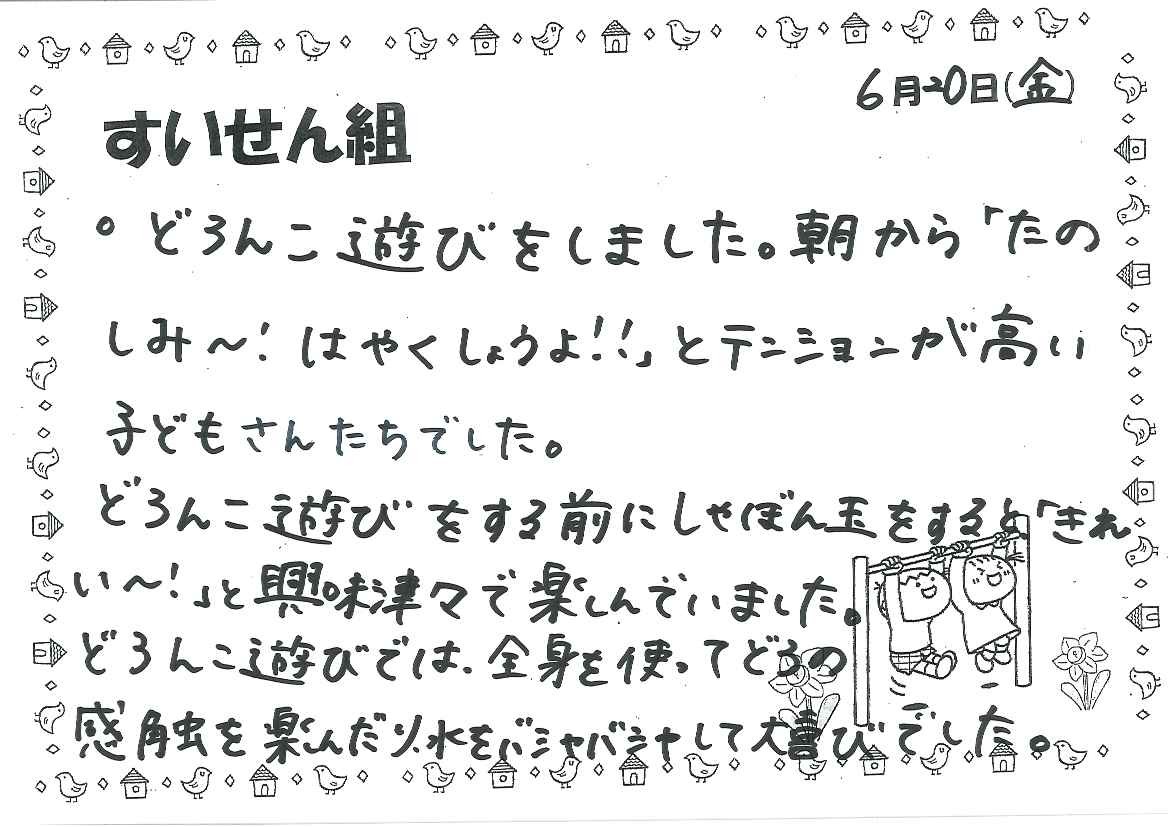 6月20日(金)
すいせん組
。どろんこ遊びをしました。朝から「たの
しみ～！はやくしょうよ!!」とテンションが高い
子どもさんたちでした。
どろんこ遊びをする前にしゃぼん玉をすると、「きれ
い～！」と興味津々で楽しんでいました。
どろんこ遊びでは、全身を使ってどろの
感触を楽しんだり、水をバシャバシャして大喜びでした。